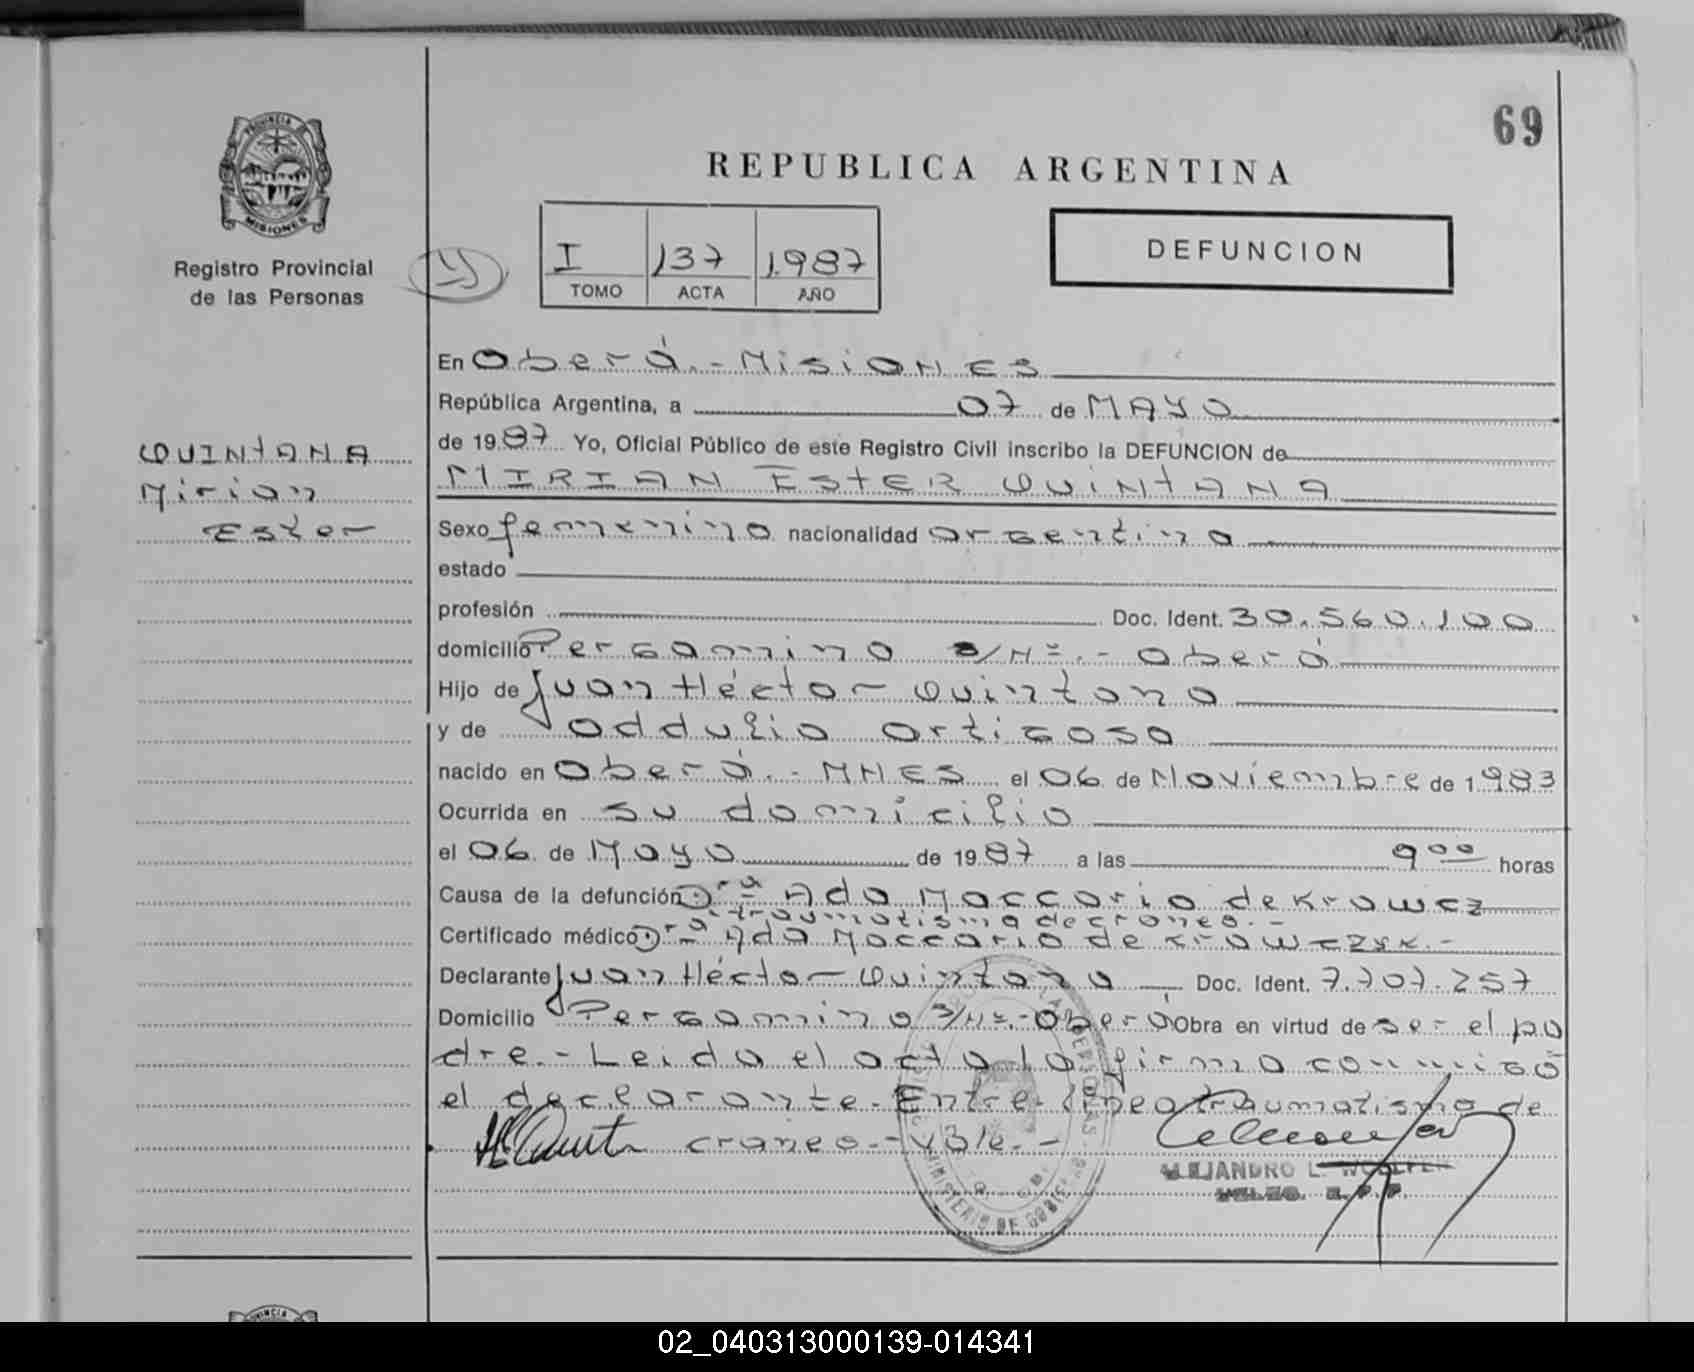 69
REPUBLICA ARGENTINA
PROVINCIA DE
MISIONES
Registro Provincial
de las Personas
I 137 1987
TOMO ACTA AÑO
DEFUNCION
QUINTANA
Mirian
Ester
En Oberá.-MisioNES
República Argentina, a 07 de MAYO
de 1987 Yo, Oficial Público de este Registro Civil inscribo la DEFUNCION de
MIRIAN ESTER QUINTANA
Sexo femenino nacionalidad argentina
estado
profesión Doc. Ident. 30.560.100
domicilio Pergamino s/Nº.- Oberá
Hijo de Juan Héctor Quintana
y de Oddulia Ortigosa
nacido en Oberá.-MNES el 06 de Noviembre de 1983
Ocurrida en su domicilio
el 06 de Mayo de 1987 a las 9 00 horas
Causa de la defunción Drª Ada Maccario de Krawcz
traumatismo de craneo.-
Certificado médico Drª Ada Maccario de Krawczyk.-
Declarante Juan Héctor Quintana Doc. Ident. 7.707.257
Domicilio Pergamino s/Nº.-Oberá Obra en virtud de ser el pa
dre.- Leida el acta la firma conmigo
el declarante.Entre linea traumatismo de
craneo.-Vale.-
ALEJANDRO L.
MINISTERIO DE GOBIERNO
02_040313000139-014341